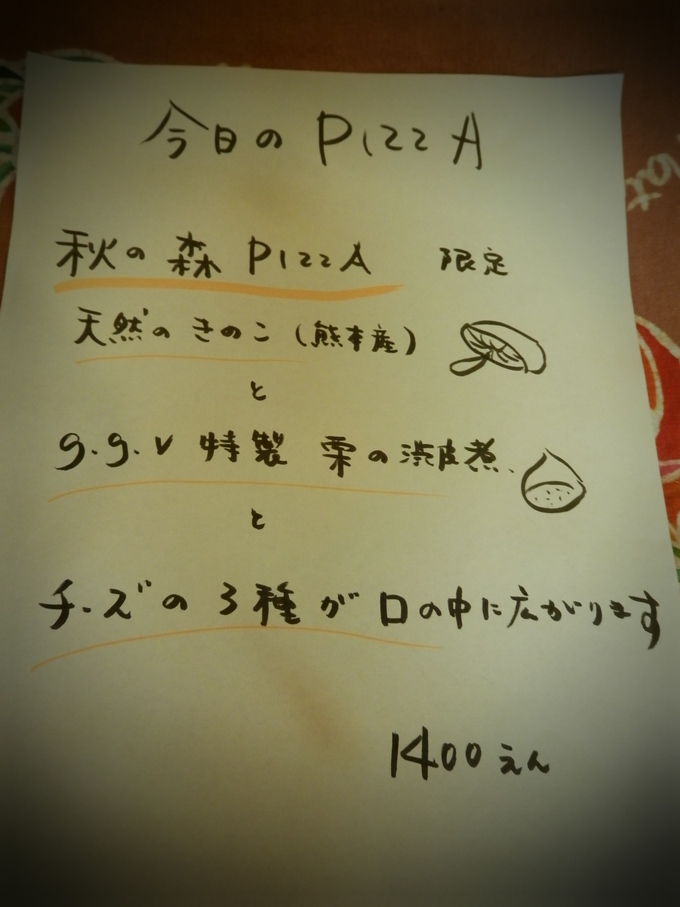 今日のPizzA
秋の森 PizzA 限定
天然のきのこ(熊本産)
と
g.g.v 特製 栗の渋皮煮.
と
チーズの3種が口の中に広がります
1400えん